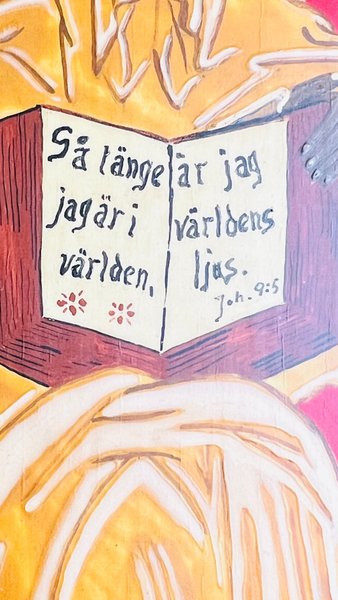 Så länge
jag är i
världen,
är jag
världens
ljus.
Joh. 9:5